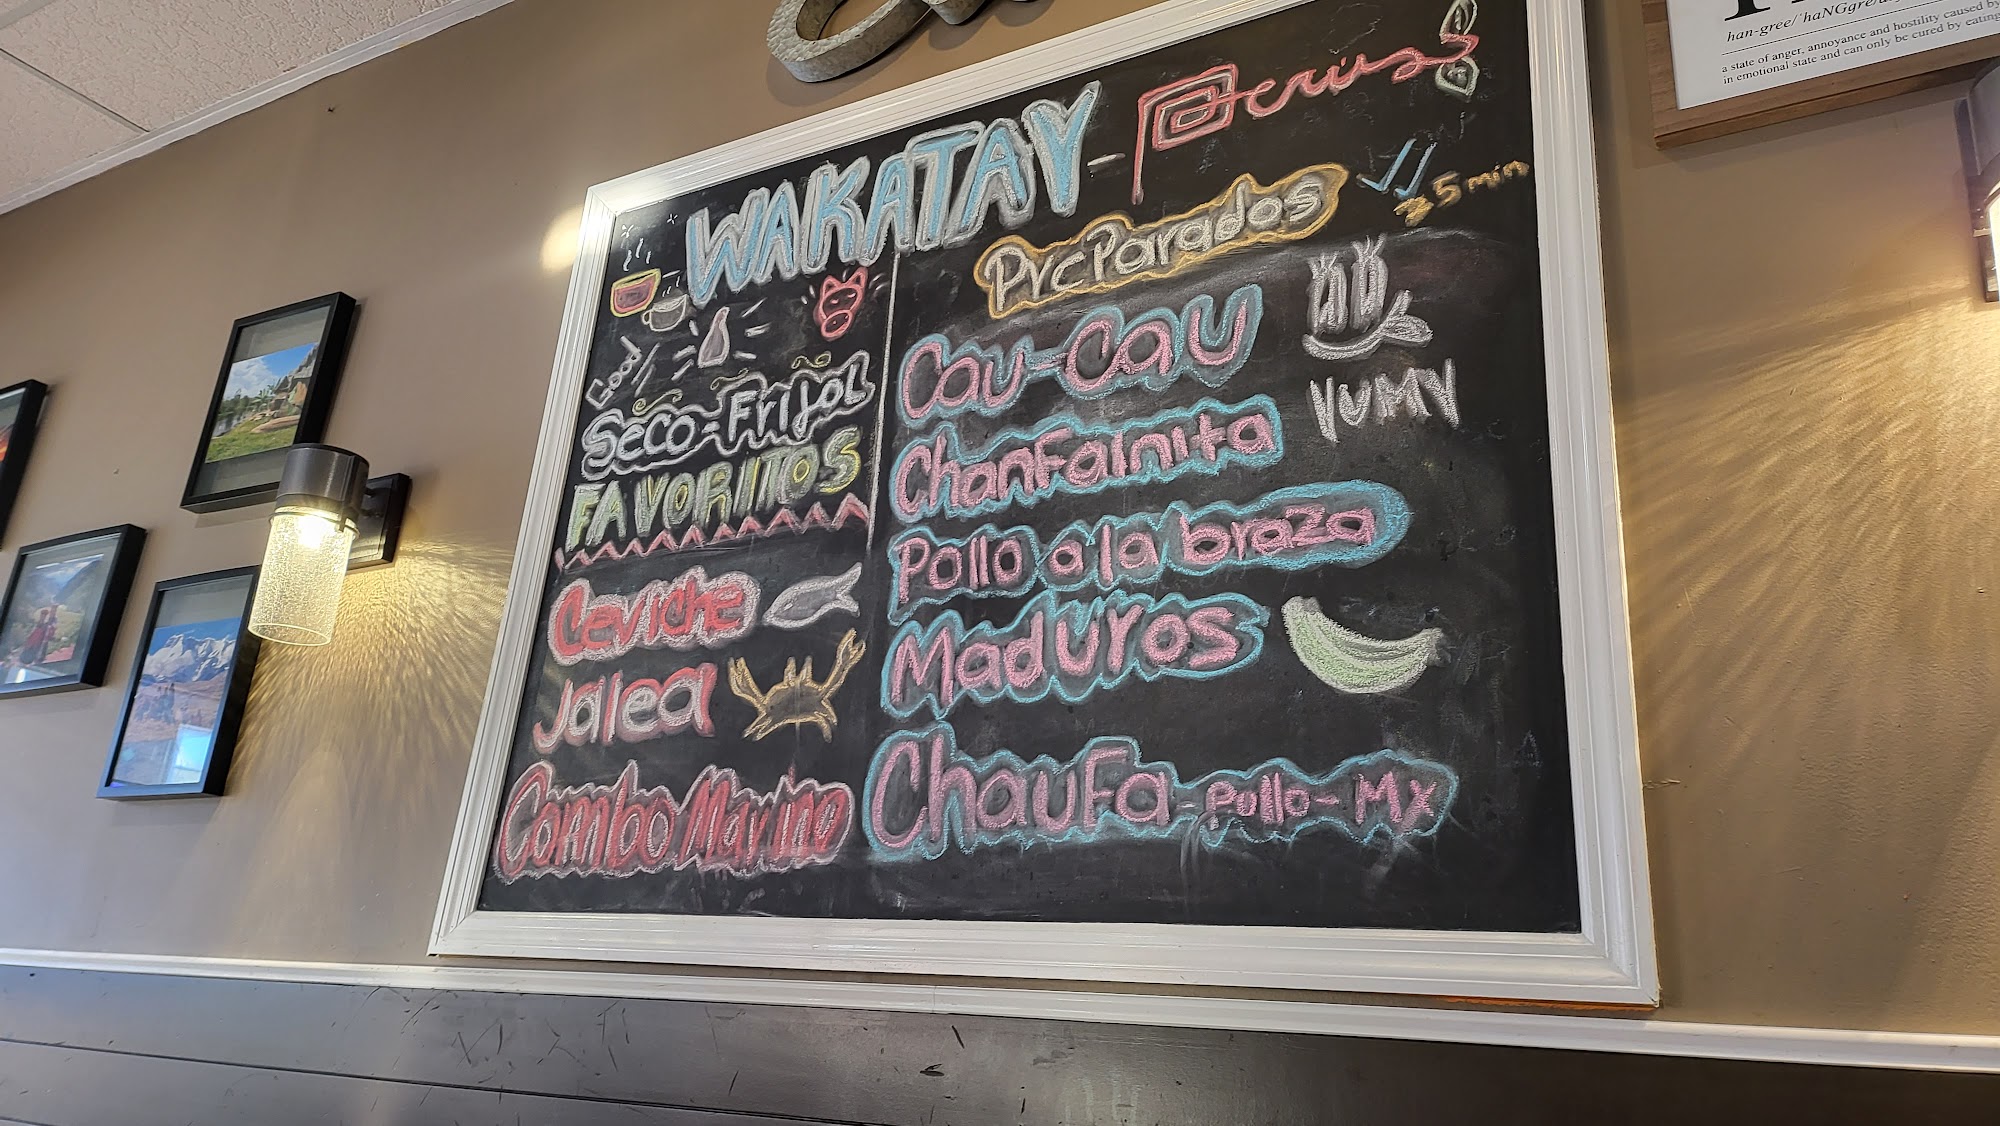 WAKATAY - Perú
PreParados
5 min
Good
Seco-Frijol
FAVORITOS
Ceviche
Jalea
Combo Marino
Cau-Cau
YUMY
Chanfainita
Pollo a la braza
Maduros
Chaufa - Pollo - Mx
han-gree/
a state of anger, annoyance and hostility caused by
in emotional state and can only be cured by eating